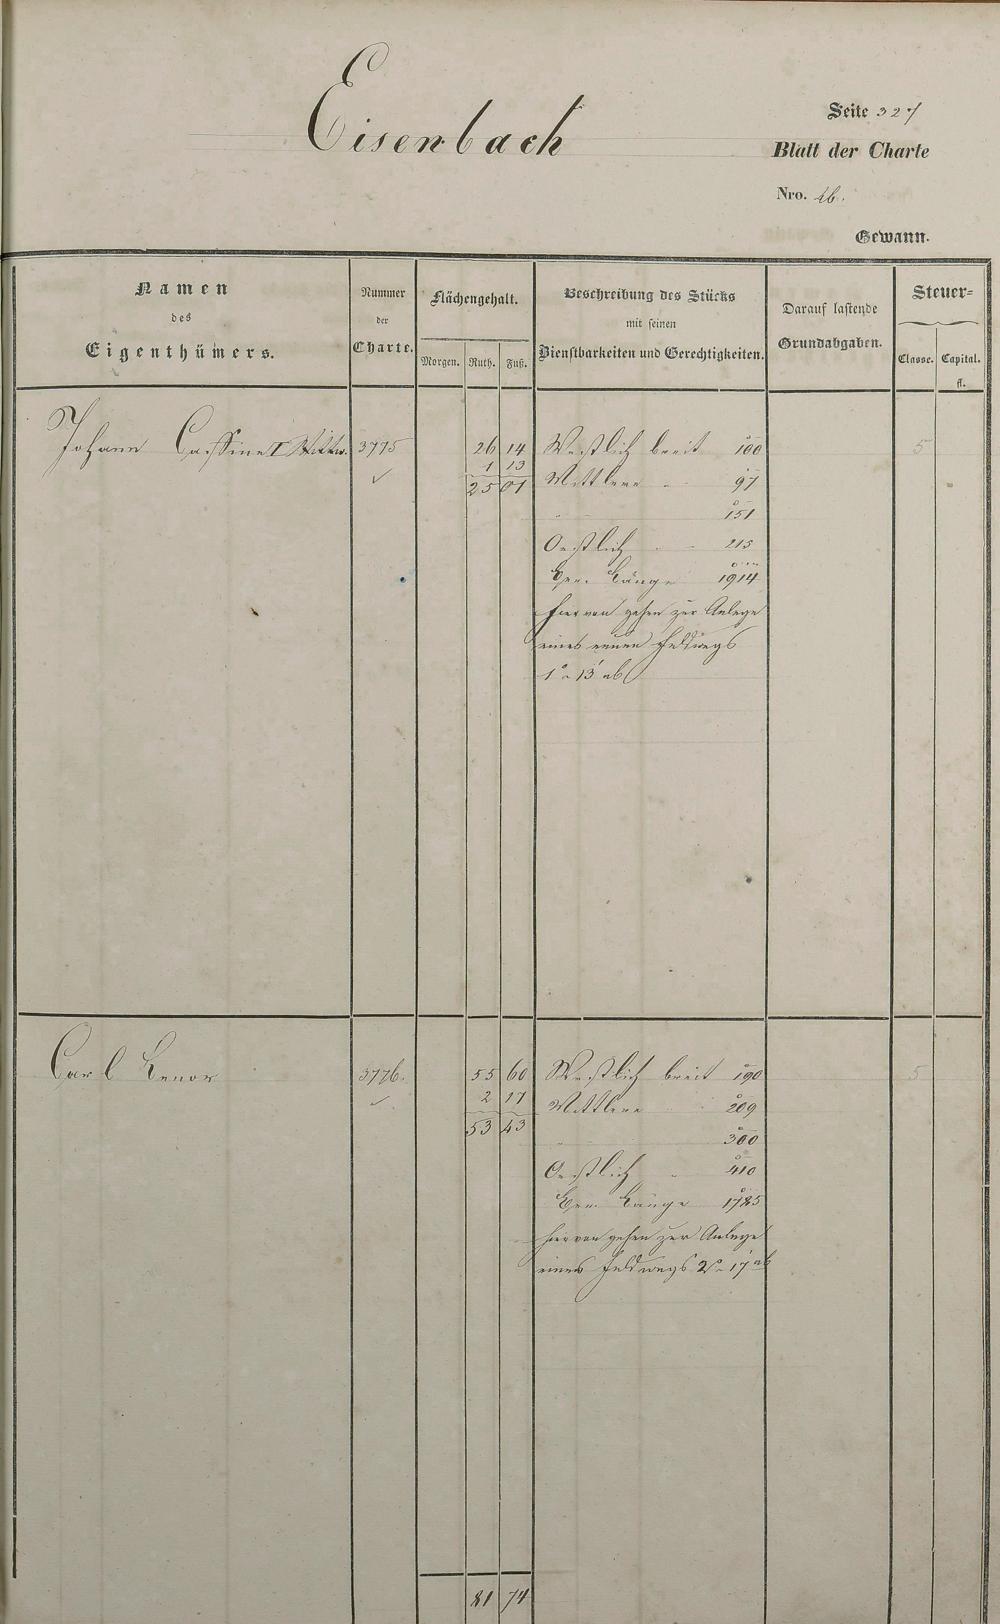 Eisenbach
Seite 327
Blatt der Charte
Nro. 26.
Gewann.
Namen des Eigenthümers.
Nummer der Charte.
Flächengehalt.
Morgen. Ruth. Fuß.
Beschreibung des Stücks mit seinen Dienstbarkeiten und Gerechtigkeiten.
Darauf lastende Grundabgaben.
Steuer=
Classe. Capital. fl.
Johann I Wittw. 3775 26 14 Westlich breit 100 5
1 13 Mittlere " 97
25 01 " " 151
Oestlich " " 215
Länge 1914
hiervon gehen zur Anlage
eines neuen Feldwegs
1° 13' ab
Carl 3776. 55 60 Westlich breit 190 5
2 17 Mittlere " 209
53 43 " 300
Oestlich " 410
Länge 1785
hiervon gehen zur Anlage
eines Feldwegs 2° 17' ab
81 74